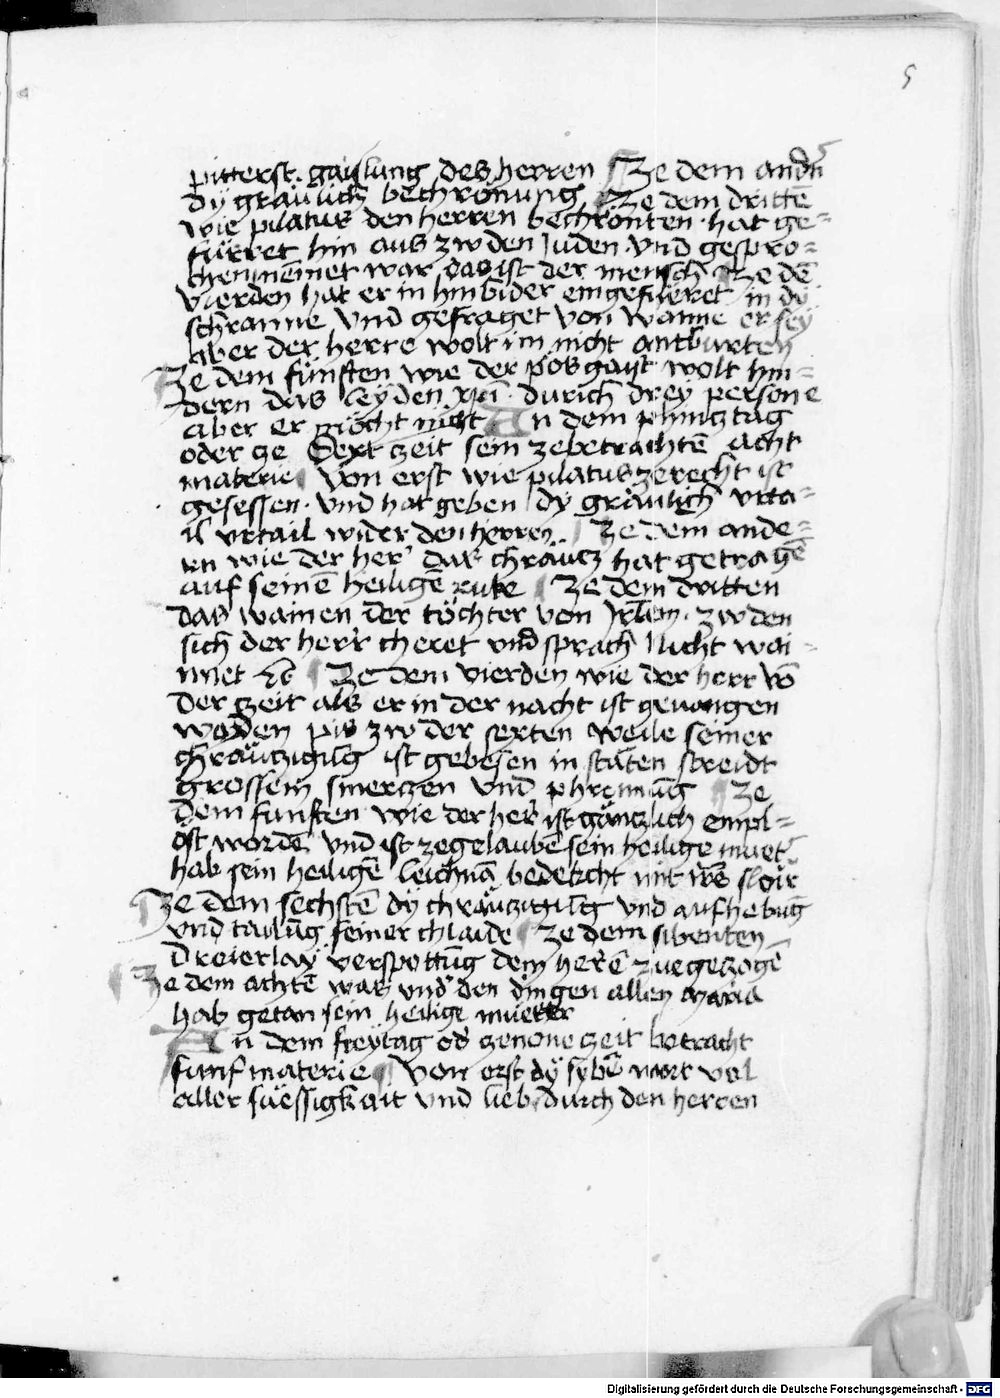 5
pitterst. gaislung des herren Ze dem andn̄
dy gräulich bechrönung Ze dem drittē
wie pilatus den herren bechrönten hat ge=
füeret hin aus zw den Juden vnd gespro=
chen nemet war das ist der mensch Ze dē
vierden hat er in hinbider eingefueret in dy
schranne vnd gefraget von wanne er sey
aber der herre wolt im nicht antburten
Ze dem fünften wie der pös gaist wolt hin=
dern das leyden xp̄i durich drey persone
aber er mocht nicht An dem phincztag
oder ze Sext zeit sein zebetrachtē acht
materie Von erst wie pilatus zerecht ist
gesessen vnd hat geben dy gräulich vrta=
il vrtail wider den herren Ze dem ande=
rn wie der her' das chräwcz hat getragē
auf seinē heiligē ruke Ze dem dritten
das wainen der töchter von Jrl̄em. zw den
sich der herr cheret vnd sprach Nicht wai=
nnet ꝛc Ze dem vierden wie der herr vō
der zeit als er in der nacht ist geuangen
worden pis zw der sexten weile seiner
chräuczigūg ist gebesen in stäten streidt
grossem smerczen vnd phremūg Ze
dem funften wie der her' ist gänczlich empl=
öst wordē vnd ist zegelaubē sein heilige muet'
hab sein heiligē leichnā bedekcht mit irē sloir
Ze dem sechstē dy chräuczigūg vnd aufhebūg
vnd tailūg seiner chlaide Ze dem sibenten
Dreierlay verspottūg dem herrē zuegeczogē
Ze dem achtē was vnd' den dingen allen maria
hab getan sein heilige mueter
An dem freytag od' ze none zeit betracht
funf materie Von erst dy sybē wort vol
aller süessigkait vnd lieb durch den herren
Digitalisierung gefördert durch die Deutsche Forschungsgemeinschaft - DFG